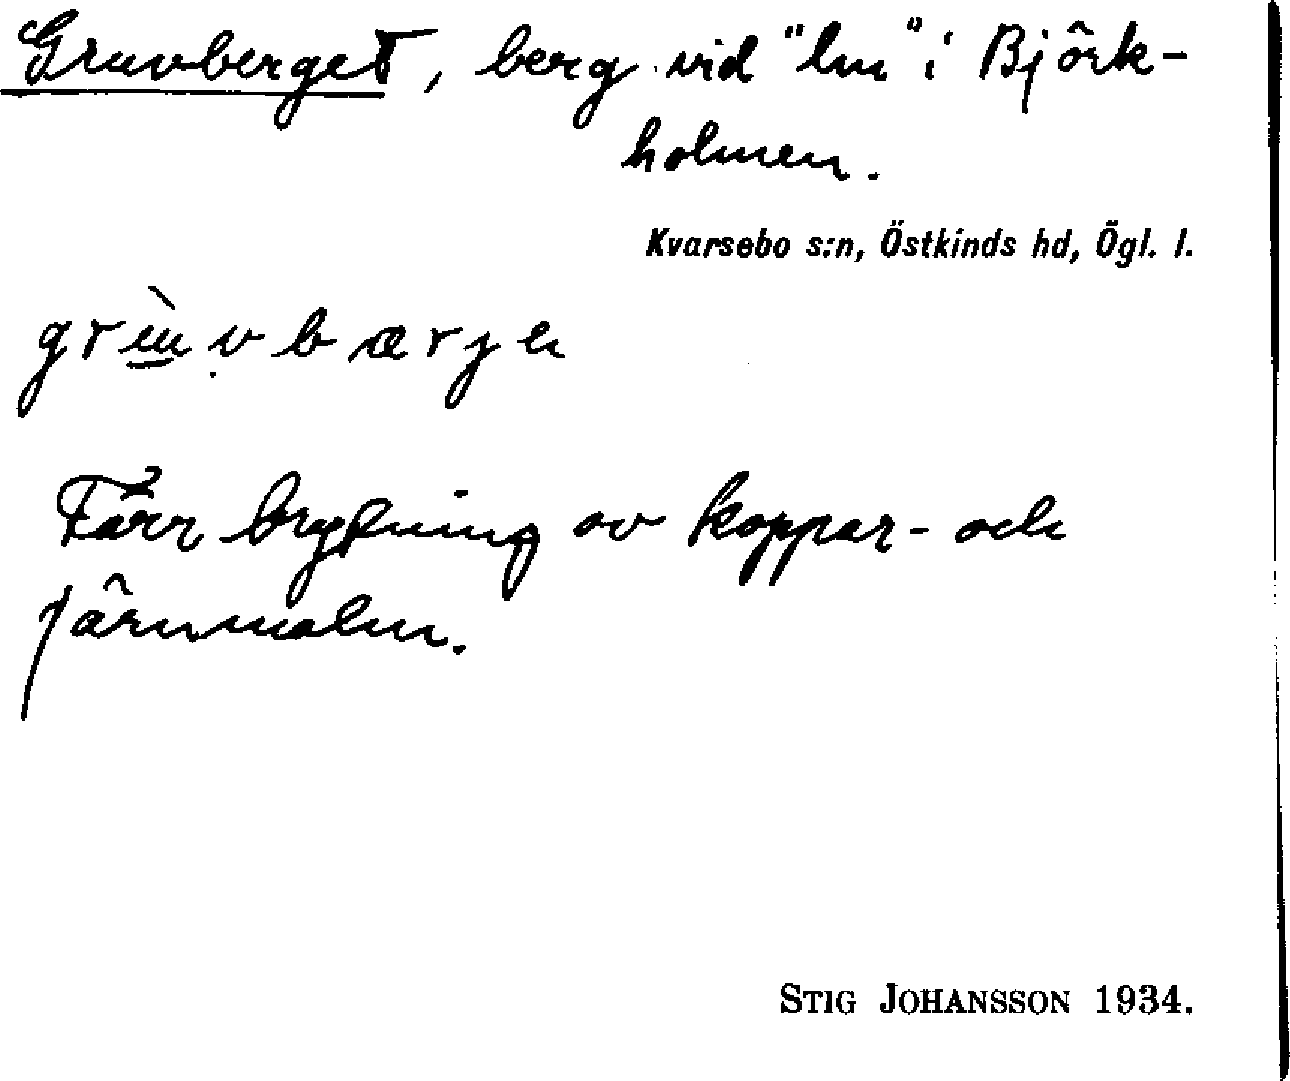 Gruvberget, berg vid "lm" i Björk-
holmen.
Kvarsebo s:n, Östkinds hd, Ögl. l.
grùvbærje
Förr brytning av koppar- och
järnmalm.
STIG JOHANSSON 1934.